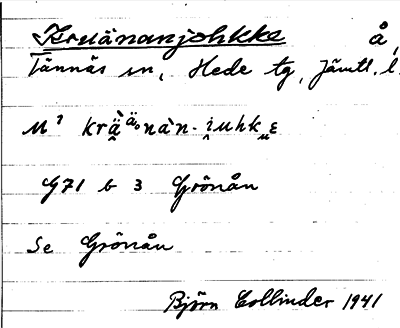 Kruänanjohkke å,
Tännäs sn, Hede tg, Jämtl. l.
M? krä̀äₒnàn-i̯uhkᵤε
G71 b 3 Grönån
Se Grönån
Björn Collinder 1941